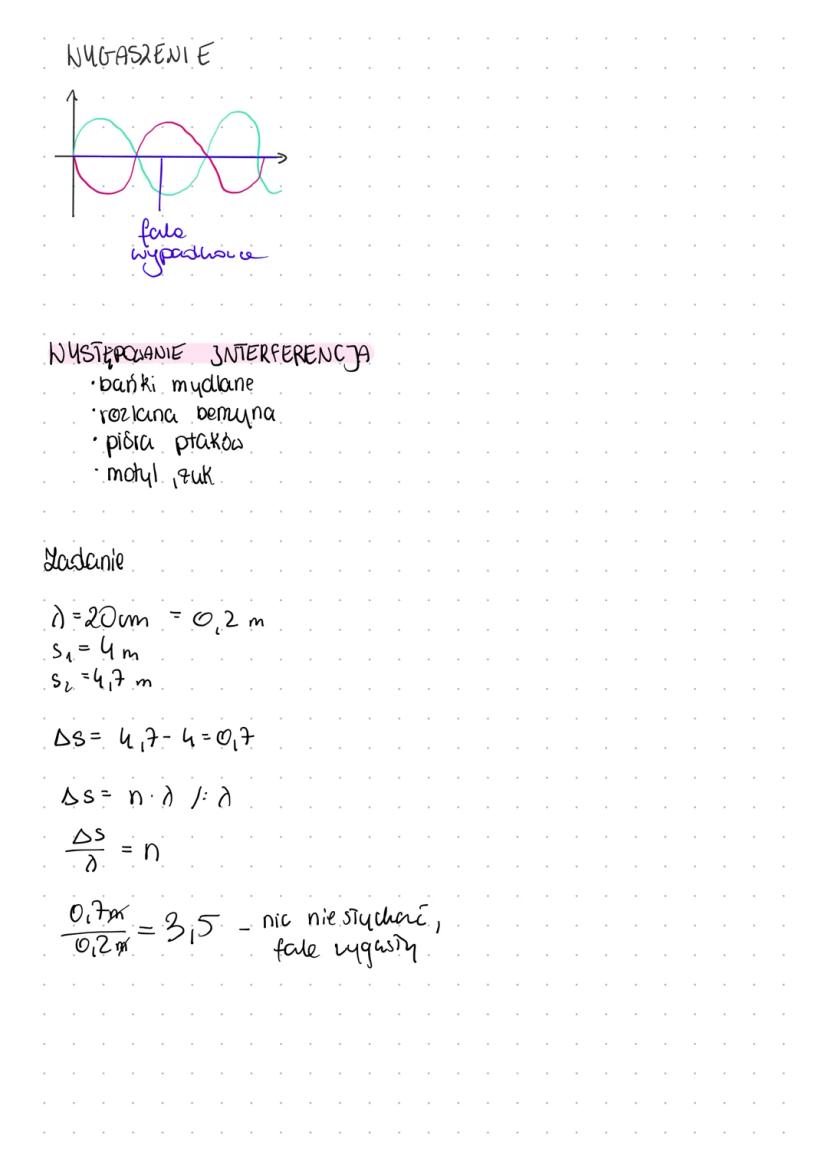 WYGASZENIE
fala
wypadkowa
WYSTĘPOWANIE INTERFERENCJA
· bańki mydlane
· rozlana benzyna
· pióra ptaków
· motyl, żuk
Zadanie
λ = 20cm = 0,2 m
s₁ = 4 m
s₂ = 4,7 m
Δs = 4,7 - 4 = 0,7
Δs = n · λ /: λ
Δs/λ = n
0,7m/0,2m = 3,5 - nic nie słychać,
fale wygasły